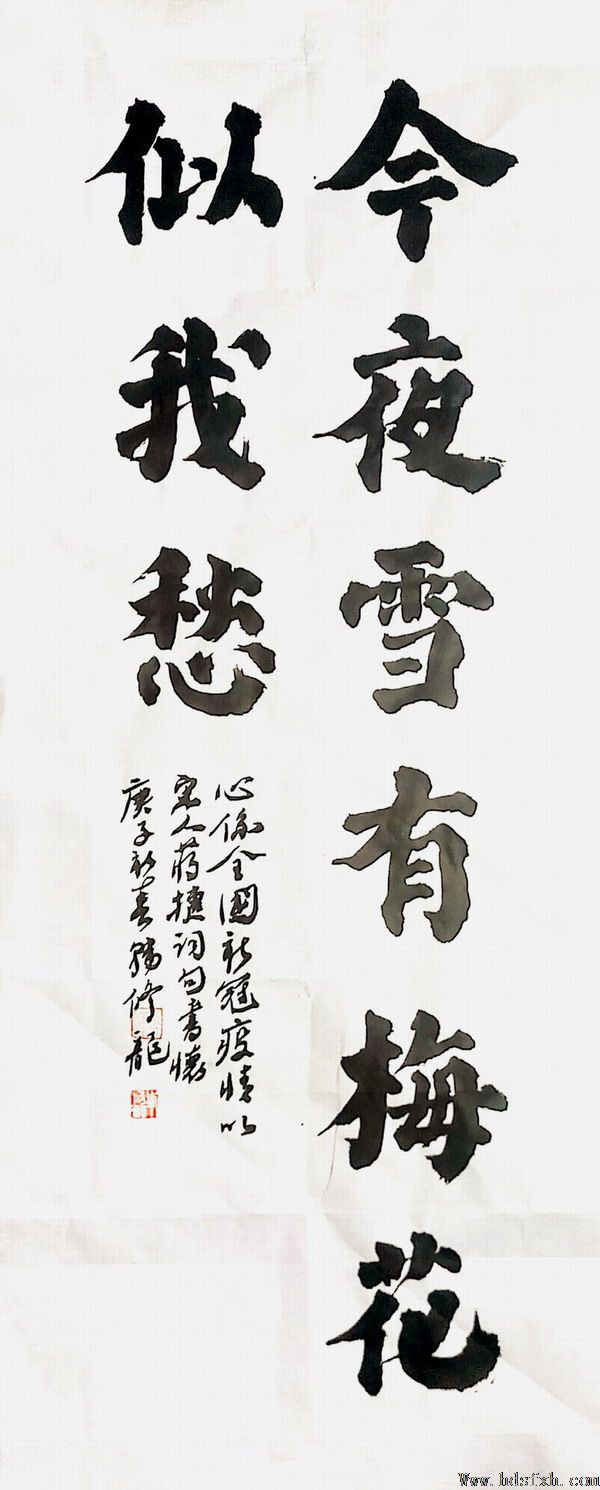 今夜雪有梅花
似我愁
心係全國新冠疫情以
宋人蔣捷詞句書懷
庚子新春 修龍
Www.hdsfxh.com